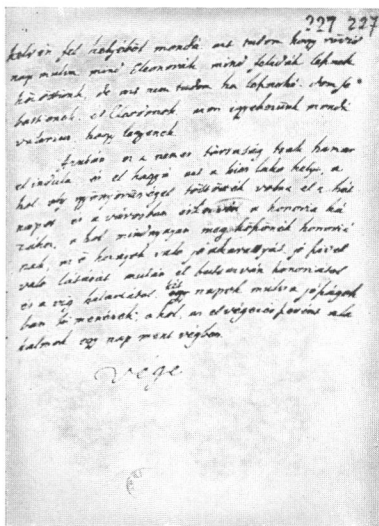 227 227
kelvén fel helyéből monda, azt tudom hogy rövid
nap mulva mind Eleonorák, mind feliciák lesznek
közöttünk, de azt nem tudom ha lesznek é
, azon igyekezünk mondá
valerius hogy legyenek
Azután ez a nemes társaság csak hamar
el indula és el hagyá azt a lako helyt, a
hol oly gyönyörűséggel töltötték volna el a hét
napot és a városban érkezvén a honoria há
zához, a hol mindnyájan meg köszönék honoriá
nak, az ő hozzájok valo jó akarattyát, jó szivel
valo látását azután el bucsuzván honoriátol
és a vig hilariatol, napok mulva jószágok
ban menének, a hol az el végezés szerént a la
kadalmok egy nap ment végben.
vége